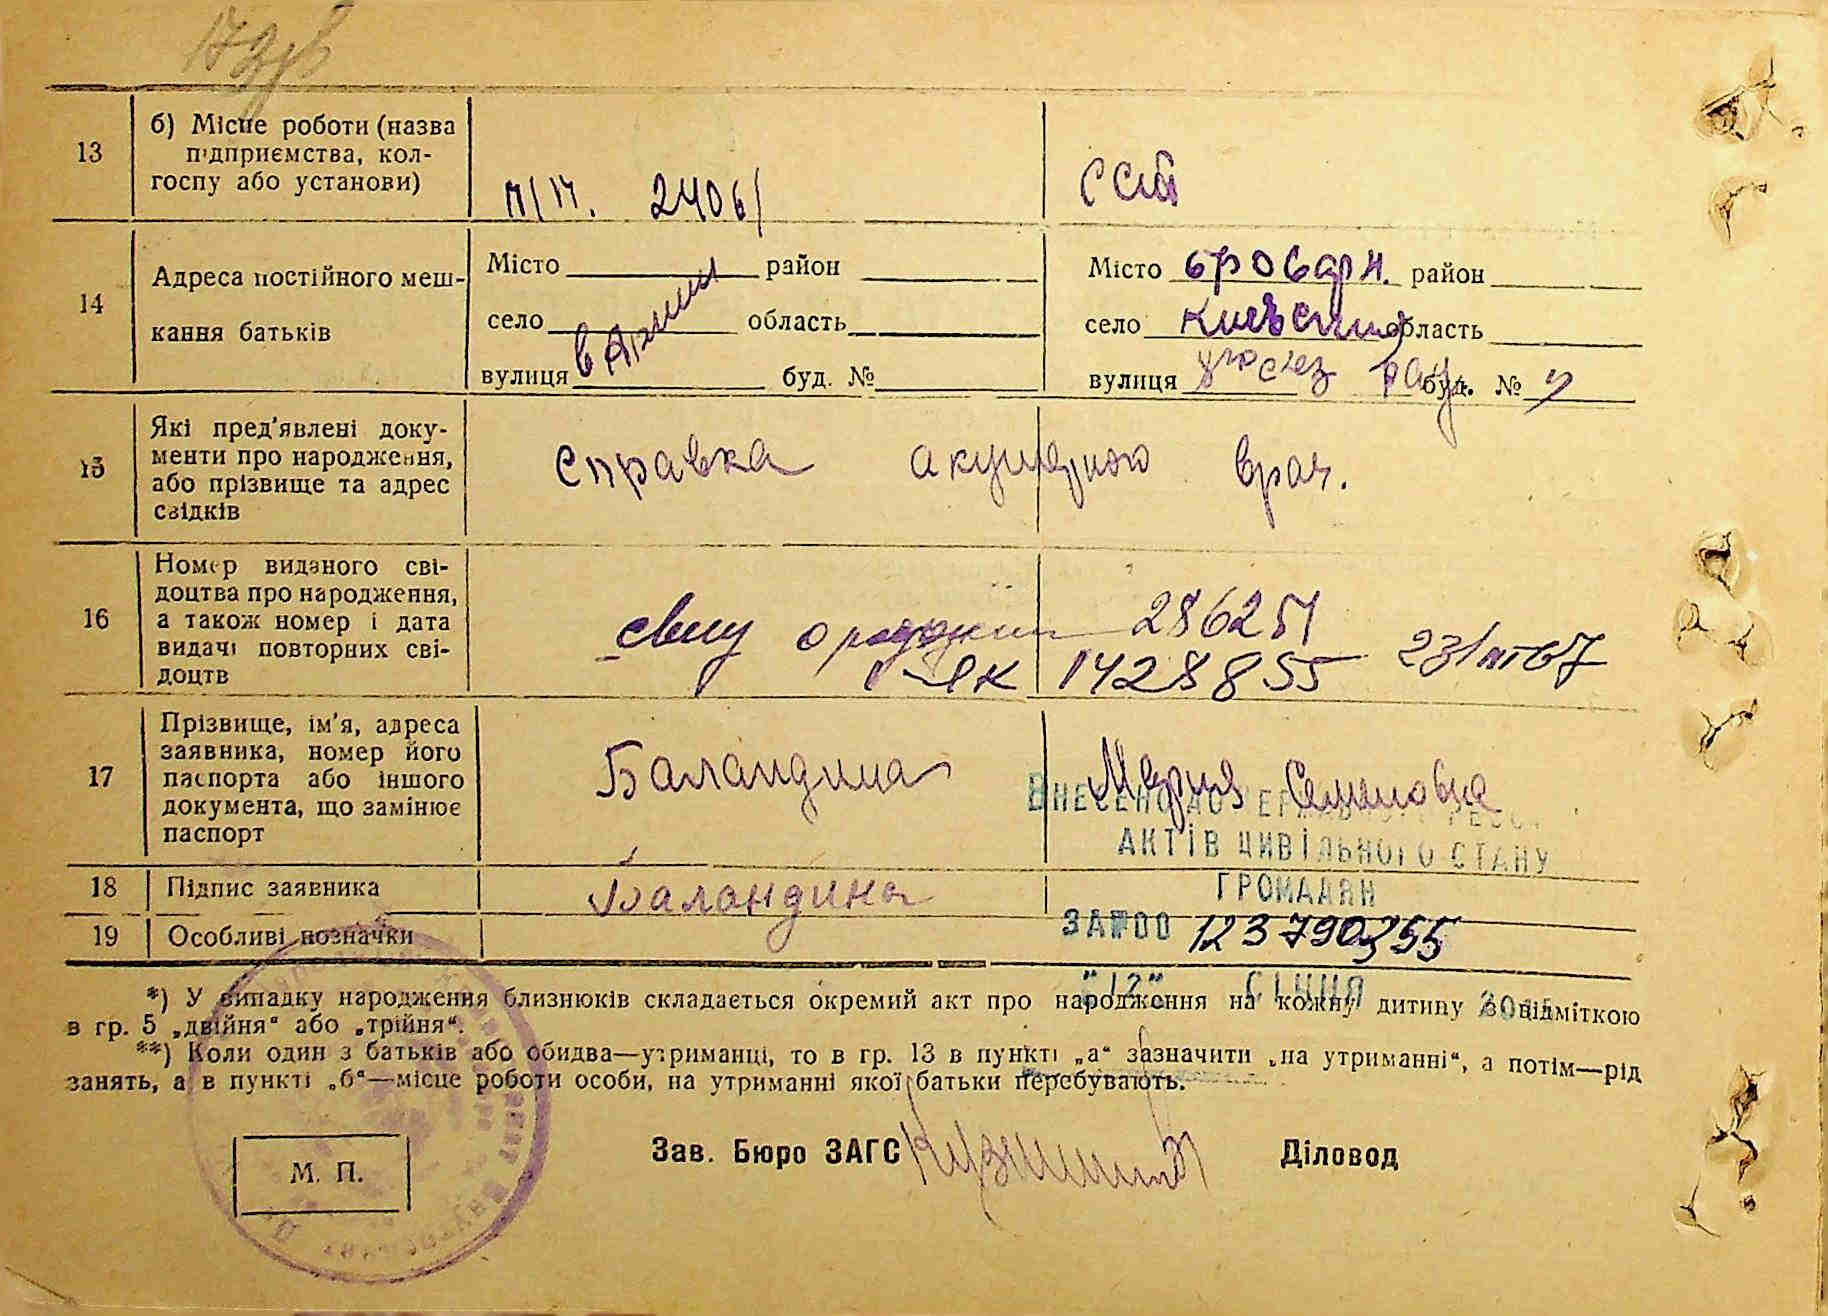 13
б) Місце роботи (назва
підприємства, кол-
госпу або установи)
п/п. 24061
14
Адреса постійного меш-
кання батьків
Місто район
село область
вулиця буд. №
в Армии
Місто Бровари. район
село Киевский область
вулиця буд. №
15
Які пред'явлені доку-
менти про народження,
або прізвище та адрес
свідків
справка врач.
16
Номер виданого сві-
доцтва про народження,
а також номер і дата
видачі повторних сві-
доцтв
286251
1428855
17
Прізвище, ім'я, адреса
заявника, номер його
паспорта або іншого
документа, що замінює
паспорт
Баландина Мария Семеновна
ВНЕСЕНО ДО
АКТІВ ЦИВІЛЬНОГО СТАНУ
ГРОМАДЯН
18 Підпис заявника Баландина
19 Особливі позначки
ЗА №00 123790355
"12" СІЧНЯ
*) У випадку народження близнюків складається окремий акт про народження на кожну дитину з відміткою
в гр. 5 „двійня“ або „трійня“.
**) Коли один з батьків або обидва—утриманці, то в гр. 13 в пункті „а“ зазначити „на утриманні“, а потім—рід
занять, а в пункті „б“—місце роботи особи, на утриманні якої батьки перебувають.
Зав. Бюро ЗАГС Діловод
М. П.